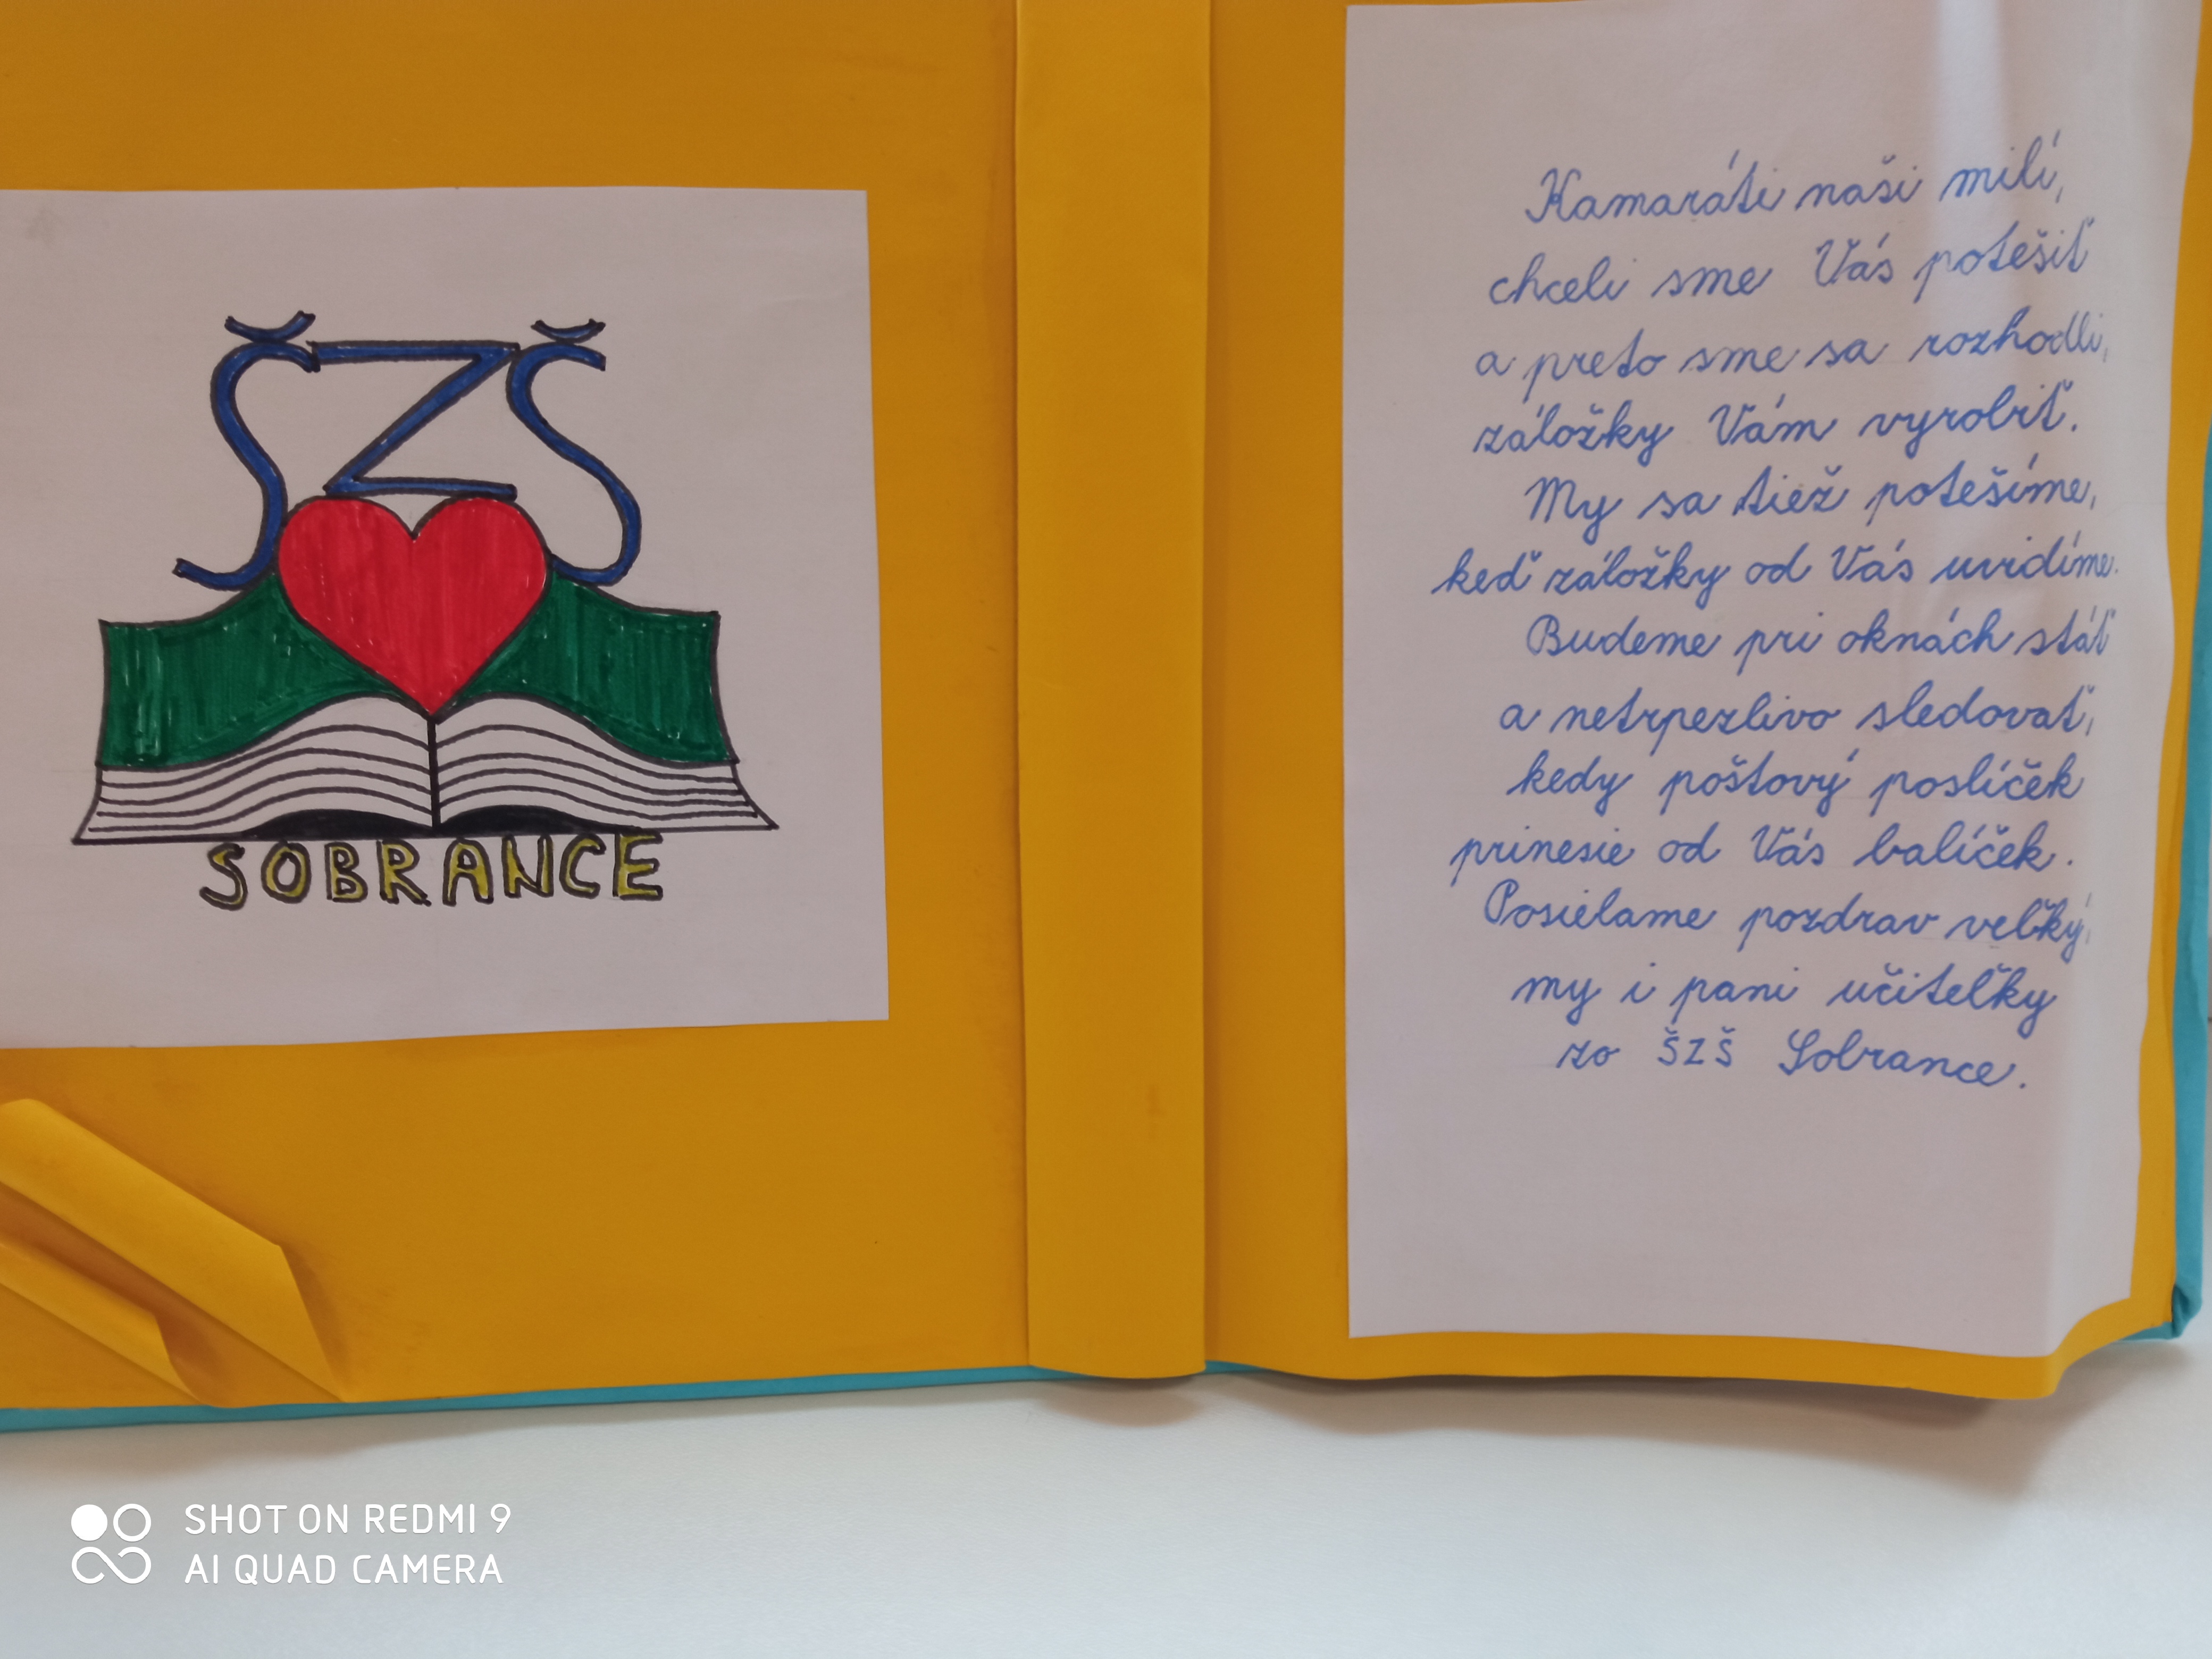 ŠZŠ
SOBRANCE
Kamaráti naši milí,
chceli sme Vás potešiť
a preto sme sa rozhodli,
záložky Vám vyrobiť.
My sa tiež potešíme,
keď záložky od Vás uvidíme.
Budeme pri oknách stáť
a netrpezlivo sledovať,
kedy poštový poslíček
prinesie od Vás balíček.
Posielame pozdrav veľký,
my i pani učiteľky
zo ŠZŠ Sobrance.
SHOT ON REDMI 9
AI QUAD CAMERA